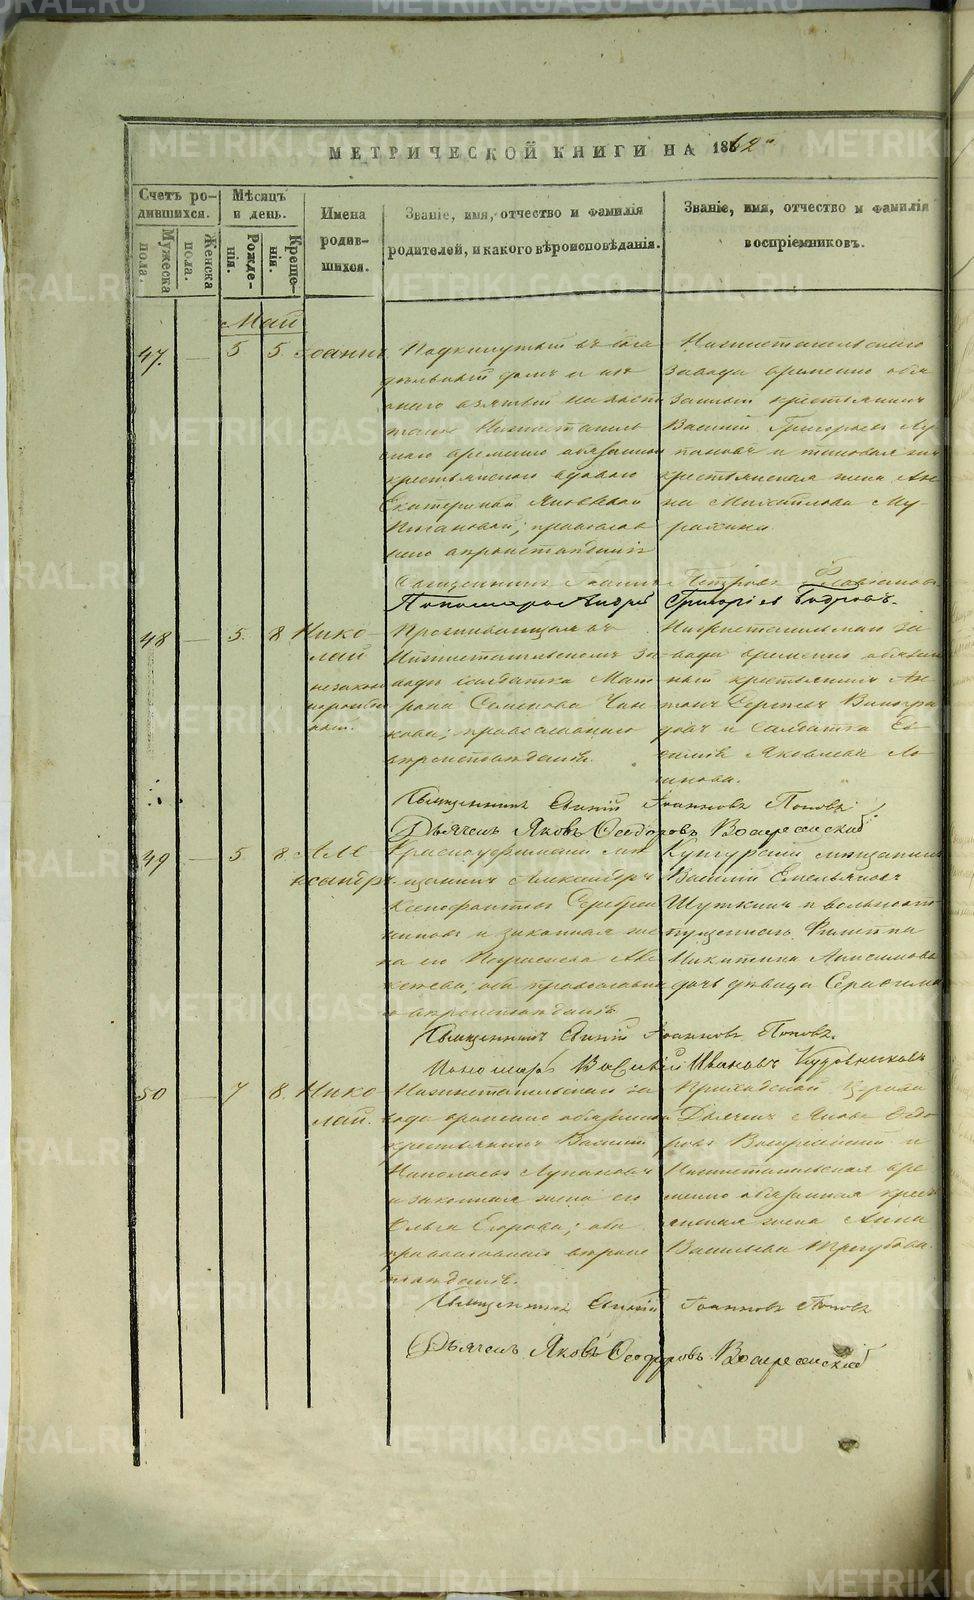 МЕТРИЧЕСКОЙ КНИГИ НА 1862
Счетъ ро-
дившихся.
Мужеска
пола.
Женска
пола.
Мѣсяцъ
и день.
Рожде-
нія.
Креще-
нія.
Имена
родив-
шихся.
Званіе, имя, отчество и фамилія
родителей, и какого вѣроисповѣданія.
Званіе, имя, отчество и фамилія
воспріемниковъ.
Май
47. 5 5 Іоаннъ
Подкинутый въ бога
дѣльный домъ и изъ
онаго взятый на воспи
таніе Нижнетагиль
скаго временно обязанною
крестьянскою вдовою
Екатериной Яковлевой
православ
наго вѣроисповѣданія
Нижнетагильскаго
завода временно обя
занный крестьянинъ
Василій Григорьевъ Лу
пановъ и таковая же
крестьянская жена Ан
на Михайлова Му-
рашкина
Священникъ Іоаннъ Петровъ
Пономарь Андрей Григорьевъ Бобровъ.
48 5. 8. Нико-
лай
незакон
норожден
ный.
Проживающая въ
Нижнетагильскомъ за
водѣ солдатка Мат
рона Семенова Чан
кова; православнаго
вѣроисповѣданія.
Нижнетагильскаго за
вода временно обязан
ный крестьянинъ Ан
тонъ Сергеевъ Виногра
довъ и солдатка
Яковлева Ло
гинова.
Священникъ Евгеній Іоанновъ Поповъ
Дьячекъ Яковъ Ѳеодоровъ Воскресенскій
49 5 8 Але
ксандръ
Красноуфимскій мѣ
щанинъ Александръ
Ксенофонтовъ Серебрен
никовъ и законная же
на его
оба православна
го вѣроисповѣданія
Кунгурскій мѣщанинъ
Василій Емельяновъ
Шуткинъ и вольноот
пущеннаго Филиппа
Никитина Анисимова
дочь дѣвица Серафима
Священникъ Евгеній Іоанновъ Поповъ.
Пономарь Василій Ивановъ Кудовниковъ
50 7 8. Нико
лай.
Нижнетагильскаго за
вода временно обязанный
крестьянинъ Василій
Николаевъ Лупановъ
и законная жена его
Ольга Егорова; оба
православнаго вѣроис
повѣданія.
Приходской Церкви
Дьячекъ Яковъ Ѳедо
ровъ Воскресенскій и
Нижнетагильская вре
менно обязанная крест
янская жена Анна
Васильева Трегубова.
Священникъ Евгеній Іоанновъ Поповъ
Дьячекъ Яковъ Ѳеодоровъ Воскресенскій
METRIKI.GASO-URAL.RU